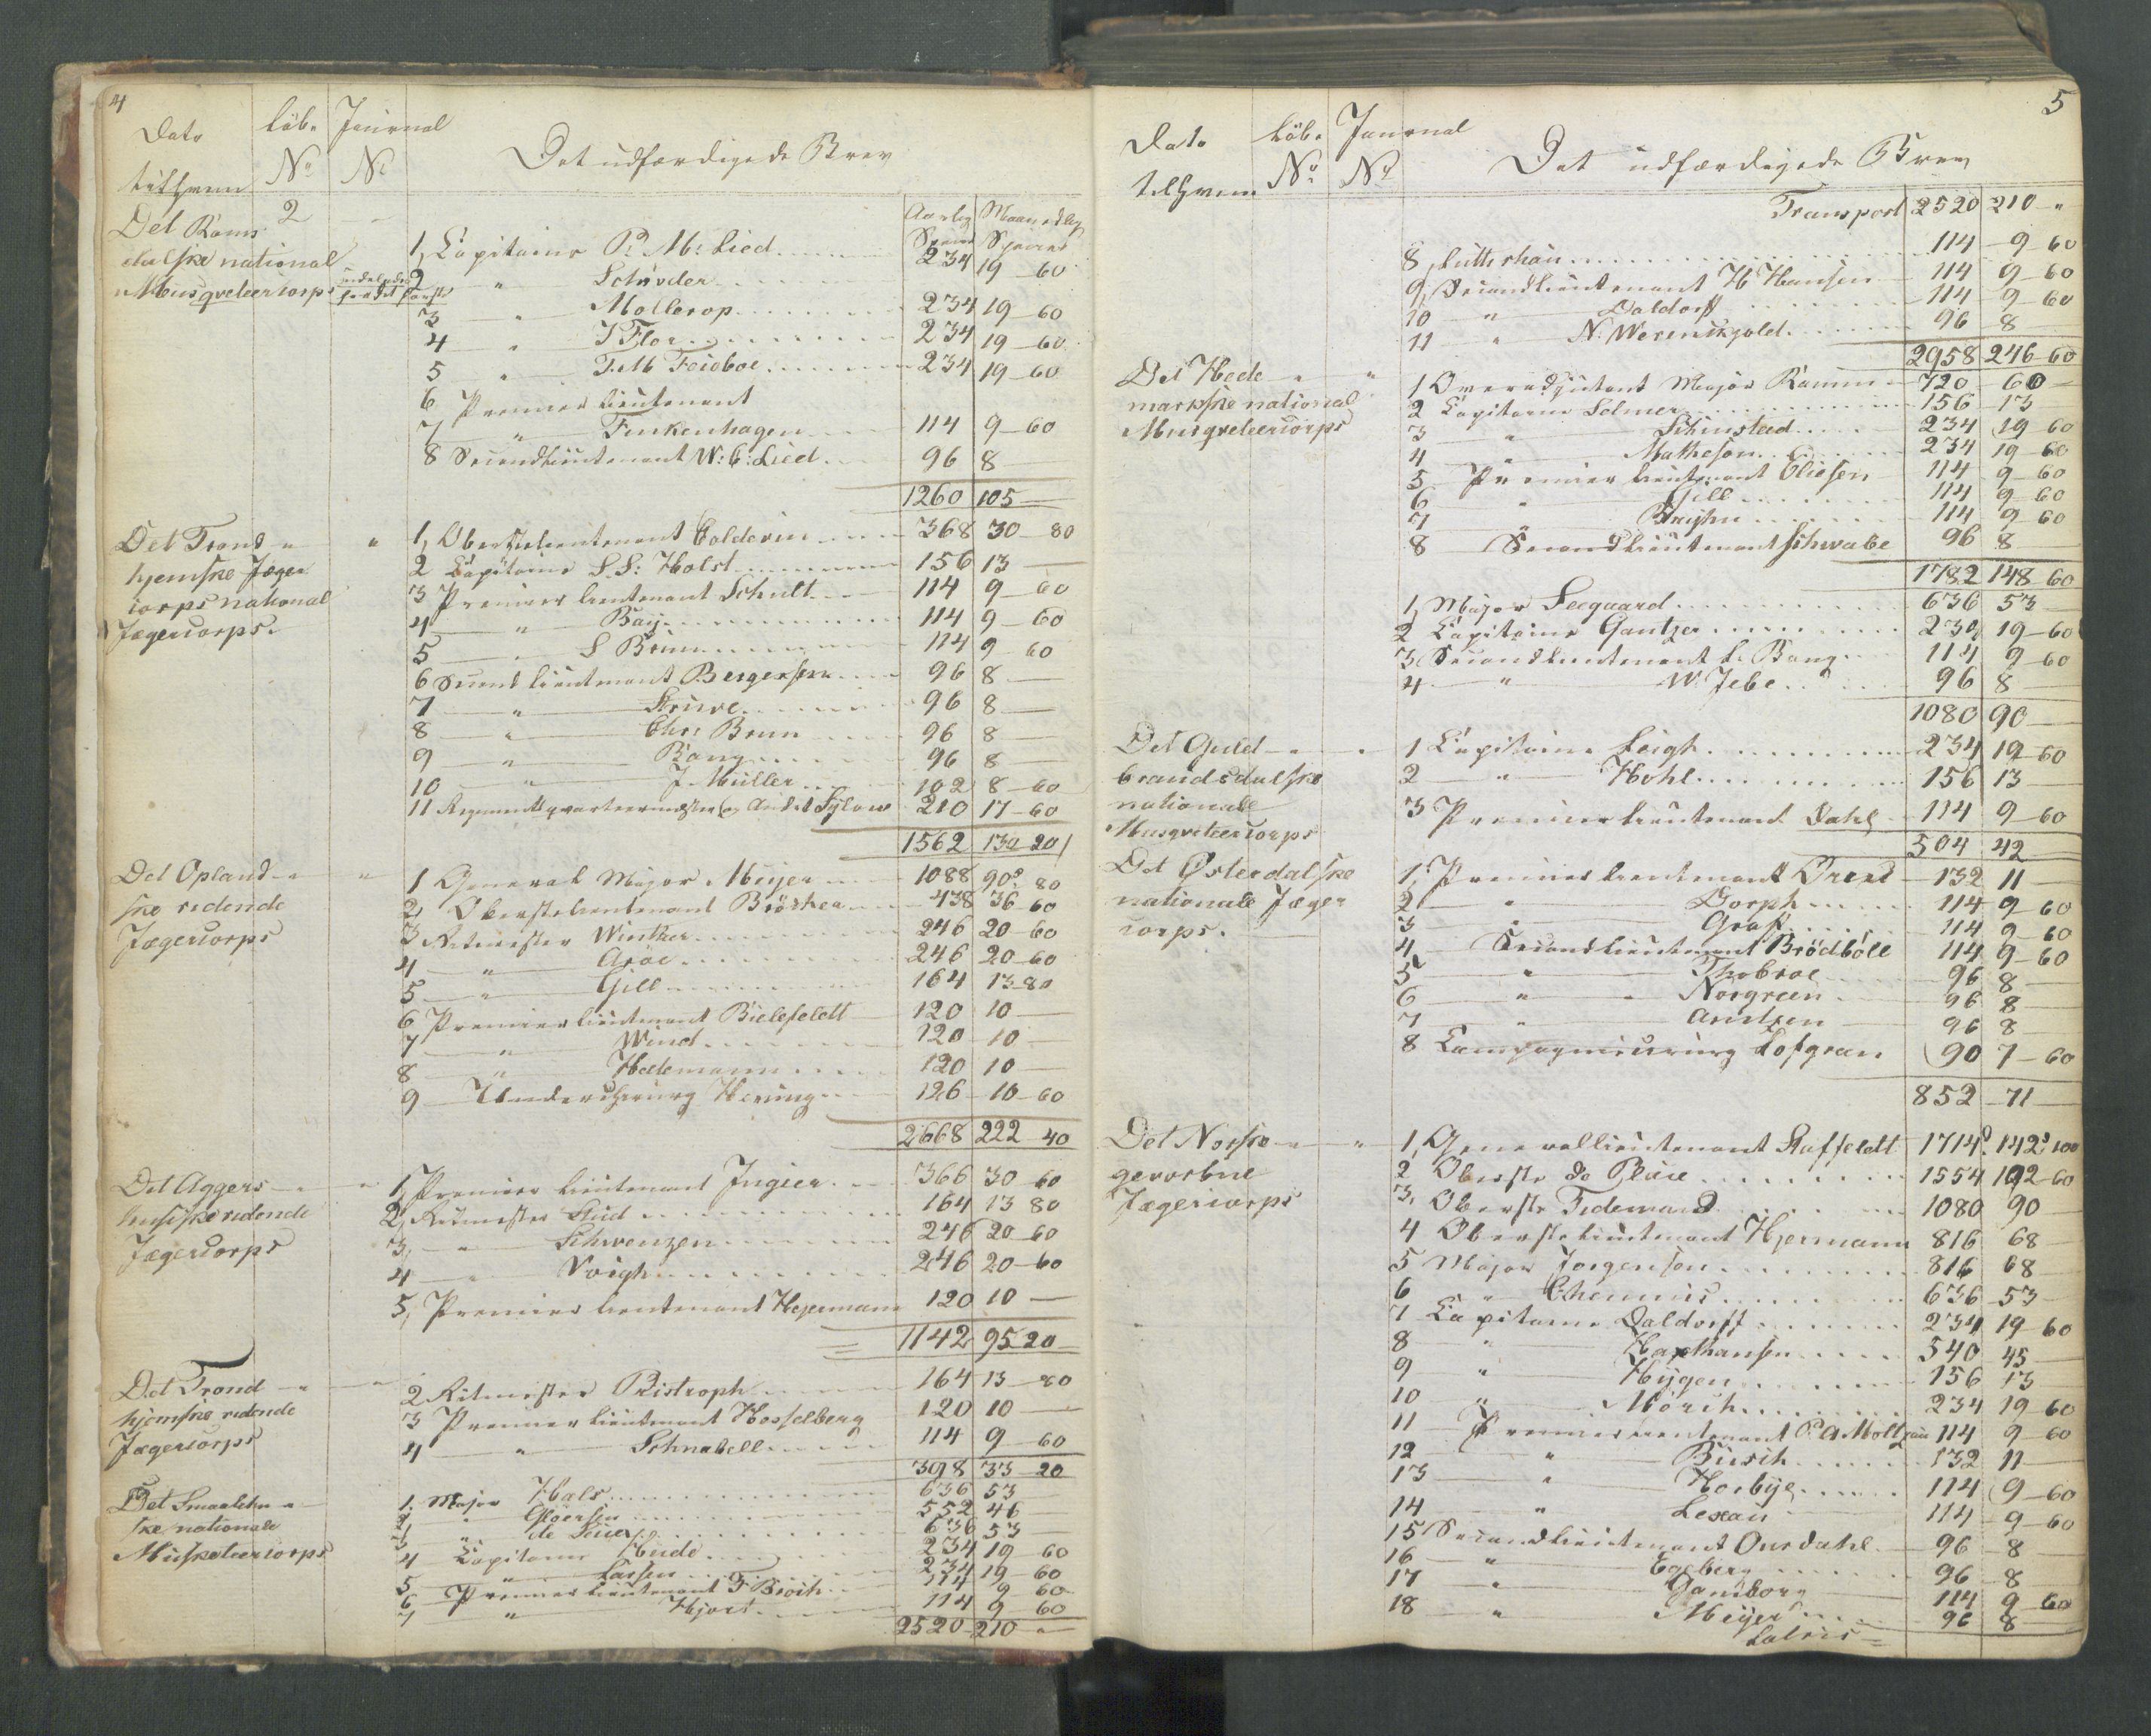 4
Dato Løb. Journal
tilhvem No No Det udfærdigede Brev
Aarlig Maanedlig
Species Species
Det Roms 2
dalske national
Musqveteercorps
1, Capitaine P. M. Lied 234 19 60
2 " Schrøder
3 " Mollerop 234 19 60
4 " J Flor 234 19 60
5 " T. M Feidboe 234 19 60
6 Premier Lieutenant
7 " Finkenhagen 114 9 60
8 Secondlieutenant W: C: Lied 96 8
1260 105
Det Trond
hjemske Jæger
corps national
Jægercorps.
1, Oberstlieutenant Coldevin 368 30 80
2 Capitaine S. S: Holst 156 13
3 Premier Lieutenant Schult 114 9 60
4 " Baij 114 9 60
5 " S Brun 114 9 60
6 Second Lieutenant Bergersen 96 8
7 " Struve 96 8
8 " Chr: Brun 96 8
9 " Bang 96 8
10 " J. Müller 102 8 60
11 Regimentsqvarteermester og Auditeur Sylow 210 17 60
1562 130 20
Det Opland
ske ridende
Jægercorps
1 General Major Meijer 1088 90 80
2, Oberstelieutenant Brøcher 438 36 60
3 Ritmester Winther 246 20 60
4 " Aroe 246 20 60
5 " Gill 164 13 80
6 Premier Lieutenant Bielefeldt 120 10
7 " Wind 120 10
8 " Hedemann 120 10
9 Underchirurg Hering 126 10 60
2668 222 40
Det Aggers
husiske ridende
Jægercorps
1, Premier Lieutenant Ingier 366 30 60
2, Ritmester Lind 164 13 80
3, " Schwenzen 246 20 60
4 " Voigh 246 20 60
5, Premier Lieutenant Hejermann 120 10
1142 95 20
Det Trond
hjemske ridende
Jægercorps
2 Ritmester Ristroph 164 13 80
3 Premier Lieutenant Hosselberg 120 10
4 " Schnabell 114 9 60
398 33 20
Det Smaalehn
ske nationale
Musketeercorps
1. Major Hals 636 53
2 " Gløersen 552 46
3 " de Seue 636 53
4 Capitaine Heide 234 19 60
5 " Larsen 234 19 60
6 Premier Lieutenant F Broch 114 9 60
7 " Hjort 114 9 60
2520 210 "
5
Dato Løb. Journal
tilhvem No No Det udfærdigede Brev
Transport 2520 210 "
8, Lütterhau 114 9 60
9, Secondlieutenant H Hansen 114 9 60
10 " Daldorff 114 9 60
11 " N: Werenskjold 96 8
2958 246 60
Det Hede
markske national
Musqveteercorps
1 Overadjutant Major Ramm 720 60
2 Capitaine Solmer 156 13
3 " Schinstad 234 19 60
4 " Matheson 234 19 60
5 Premier Lieutenant Eliesen 114 9 60
6 " Gill 114 9 60
7 " 114 9 60
8 Secondlieutenant Schwabe 96 8
1782 148 60
1, Major Seegaard 636 53
2 Capitaine Gantzer 234 19 60
3, Secondlieutenant L. Bang 114 9 60
4 " W. Jebe 96 8
1080 90
Det Guld
brandsdalske
nationale
Musqveteercorps
1 Capitaine Leigh 234 19 60
2 " Hohl 156 13
3 Premier Lieutenant Dahl 114 9 60
504 42
Det Østerdalske
nationale Jæger
corps.
1, Premier Lieutenant 132 11
2 " Dorph 114 9 60
3 " Graff 114 9 60
4 Secondlieutenant Brødbøll 114 9 60
5 " Thobroe 96 8
6 " Norgreen 96 8
7 " Arntzen 96 8
8 Compagniechirurg Lofgran 90 7 60
852 71
Det Norske
gevorbne
Jægercorps
1, Generallieutenant Staffeldt 1714 142 100
2 Oberste de Place 1554 192 60
3, Oberste Tidemand 1080 90
4 Oberstelieutenant Hjermann 816 68
5 Major Jorgensen 816 68
6 " Chemnis 636 53
7 Capitaine Daldorff 234 19 60
8 " Haxthausen 540 45
9 " Hÿgen 156 13
10 " Mørch 234 19 60
11 Premier Lieutenant P. A Moltzau 114 9 60
12 " Busch 132 11
13 " Horbÿe 114 9 60
14 " Lexau 114 9 60
15 Secondlieutenant Ousdahl 96 8
16 " Egeberg 96 8
17 " Gamborg 114 9 60
18 " Meijer 96 8
Lateris